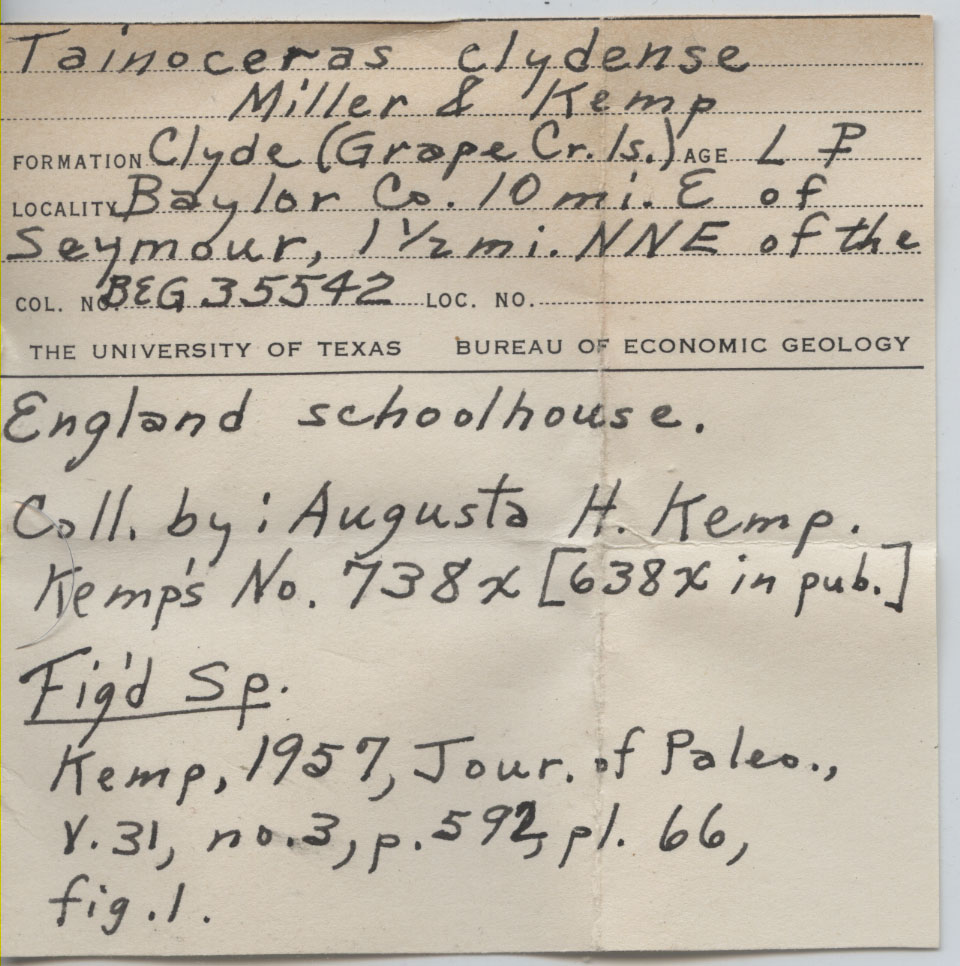 Tainoceras clydense
Miller & Kemp
FORMATION Clyde (Grape Cr. ls.) AGE L P
LOCALITY Baylor Co. 10 mi. E of
Seymour, 1 1/2 mi. NNE of the
COL. NO. BEG 35542 LOC. NO.
THE UNIVERSITY OF TEXAS BUREAU OF ECONOMIC GEOLOGY
England schoolhouse.
Coll. by: Augusta H. Kemp.
Kemp's No. 738x [638x in pub.]
Fig'd Sp.
Kemp, 1957, Jour. of Paleo.,
V. 31, no. 3, p. 592, pl. 66,
fig. 1.